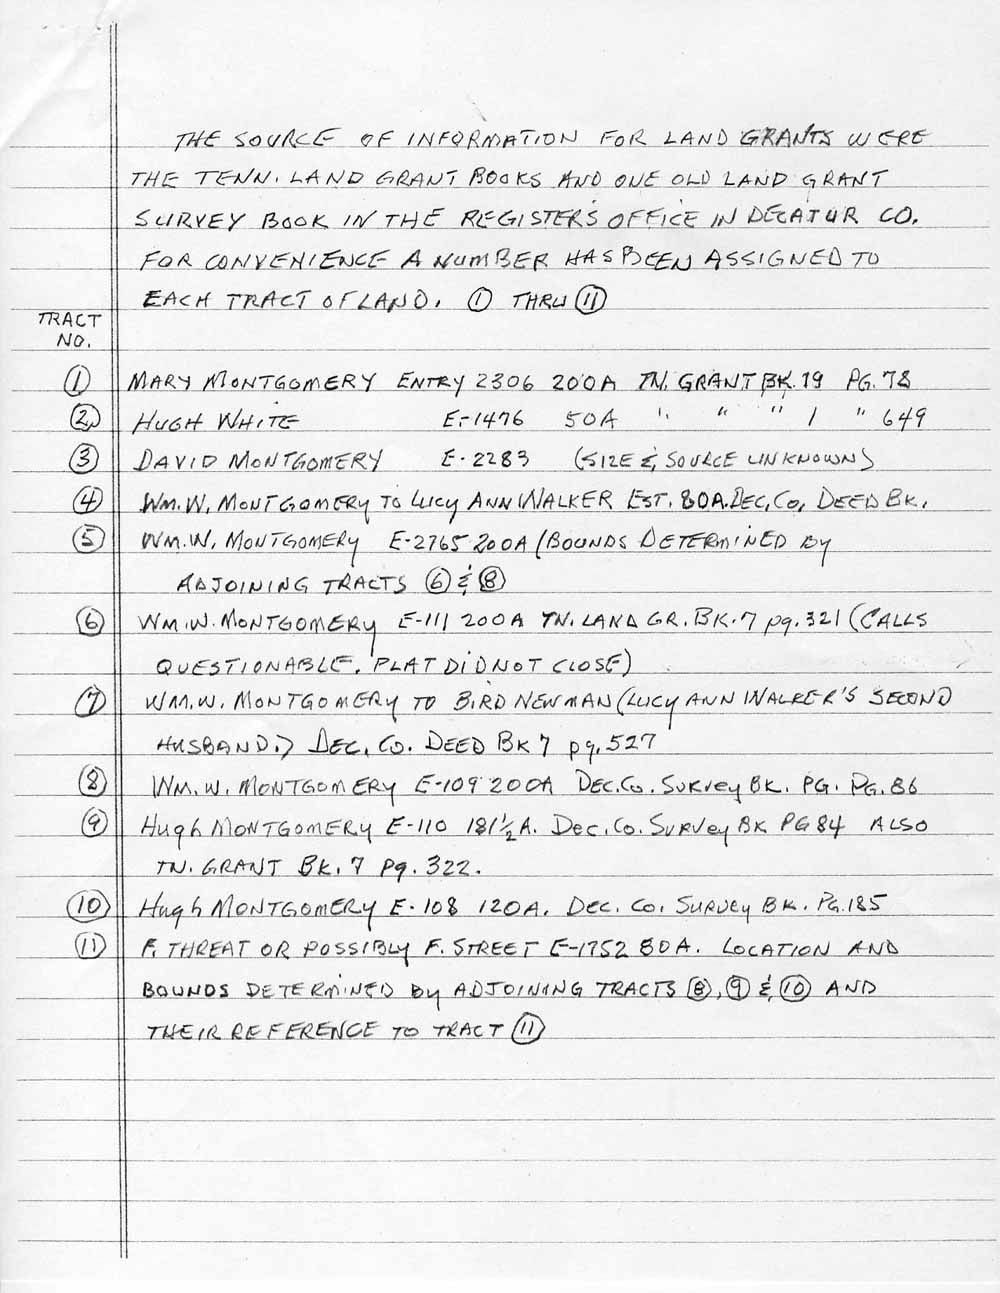 THE SOURCE OF INFORMATION FOR LAND GRANTS WERE
THE TENN. LAND GRANT BOOKS AND ONE OLD LAND GRANT
SURVEY BOOK IN THE REGISTER'S OFFICE IN DECATUR CO.
FOR CONVENIENCE A NUMBER HAS BEEN ASSIGNED TO
EACH TRACT OF LAND. ① THRU ⑪
TRACT
NO.
① MARY MONTGOMERY ENTRY 2306 200A TN. GRANT BK. 19 PG. 78
② HUGH WHITE E-1476 50A " " " 1 " 649
③ DAVID MONTGOMERY E-2283 (SIZE & SOURCE UNKNOWN)
④ WM. W. MONTGOMERY TO LUCY ANN WALKER EST. 80A. DEC. CO. DEED BK.
⑤ WM. W. MONTGOMERY E-2765 200A (BOUNDS DETERMINED BY
ADJOINING TRACTS ⑥ & ⑧
⑥ WM. W. MONTGOMERY E-111 200A TN. LAND GR. BK. 7 pg. 321 (CALLS
QUESTIONABLE. PLAT DID NOT CLOSE)
⑦ WM. W. MONTGOMERY TO BIRD NEWMAN (LUCY ANN WALKER'S SECOND
HUSBAND.) DEC. CO. DEED BK 7 pg. 527
⑧ WM. W. MONTGOMERY E-109 200A DEC. CO. SURVEY BK. PG. PG. 86
⑨ HUGH MONTGOMERY E-110 181½ A. DEC. CO. SURVEY BK PG 84 ALSO
TN. GRANT BK. 7 Pg. 322.
⑩ HUGH MONTGOMERY E-108 120A. DEC. CO. SURVEY BK. PG. 185
⑪ F. THREAT OR POSSIBLY F. STREET E-1752 80A. LOCATION AND
BOUNDS DETERMINED BY ADJOINING TRACTS ⑧, ⑨ & ⑩ AND
THEIR REFERENCE TO TRACT ⑪